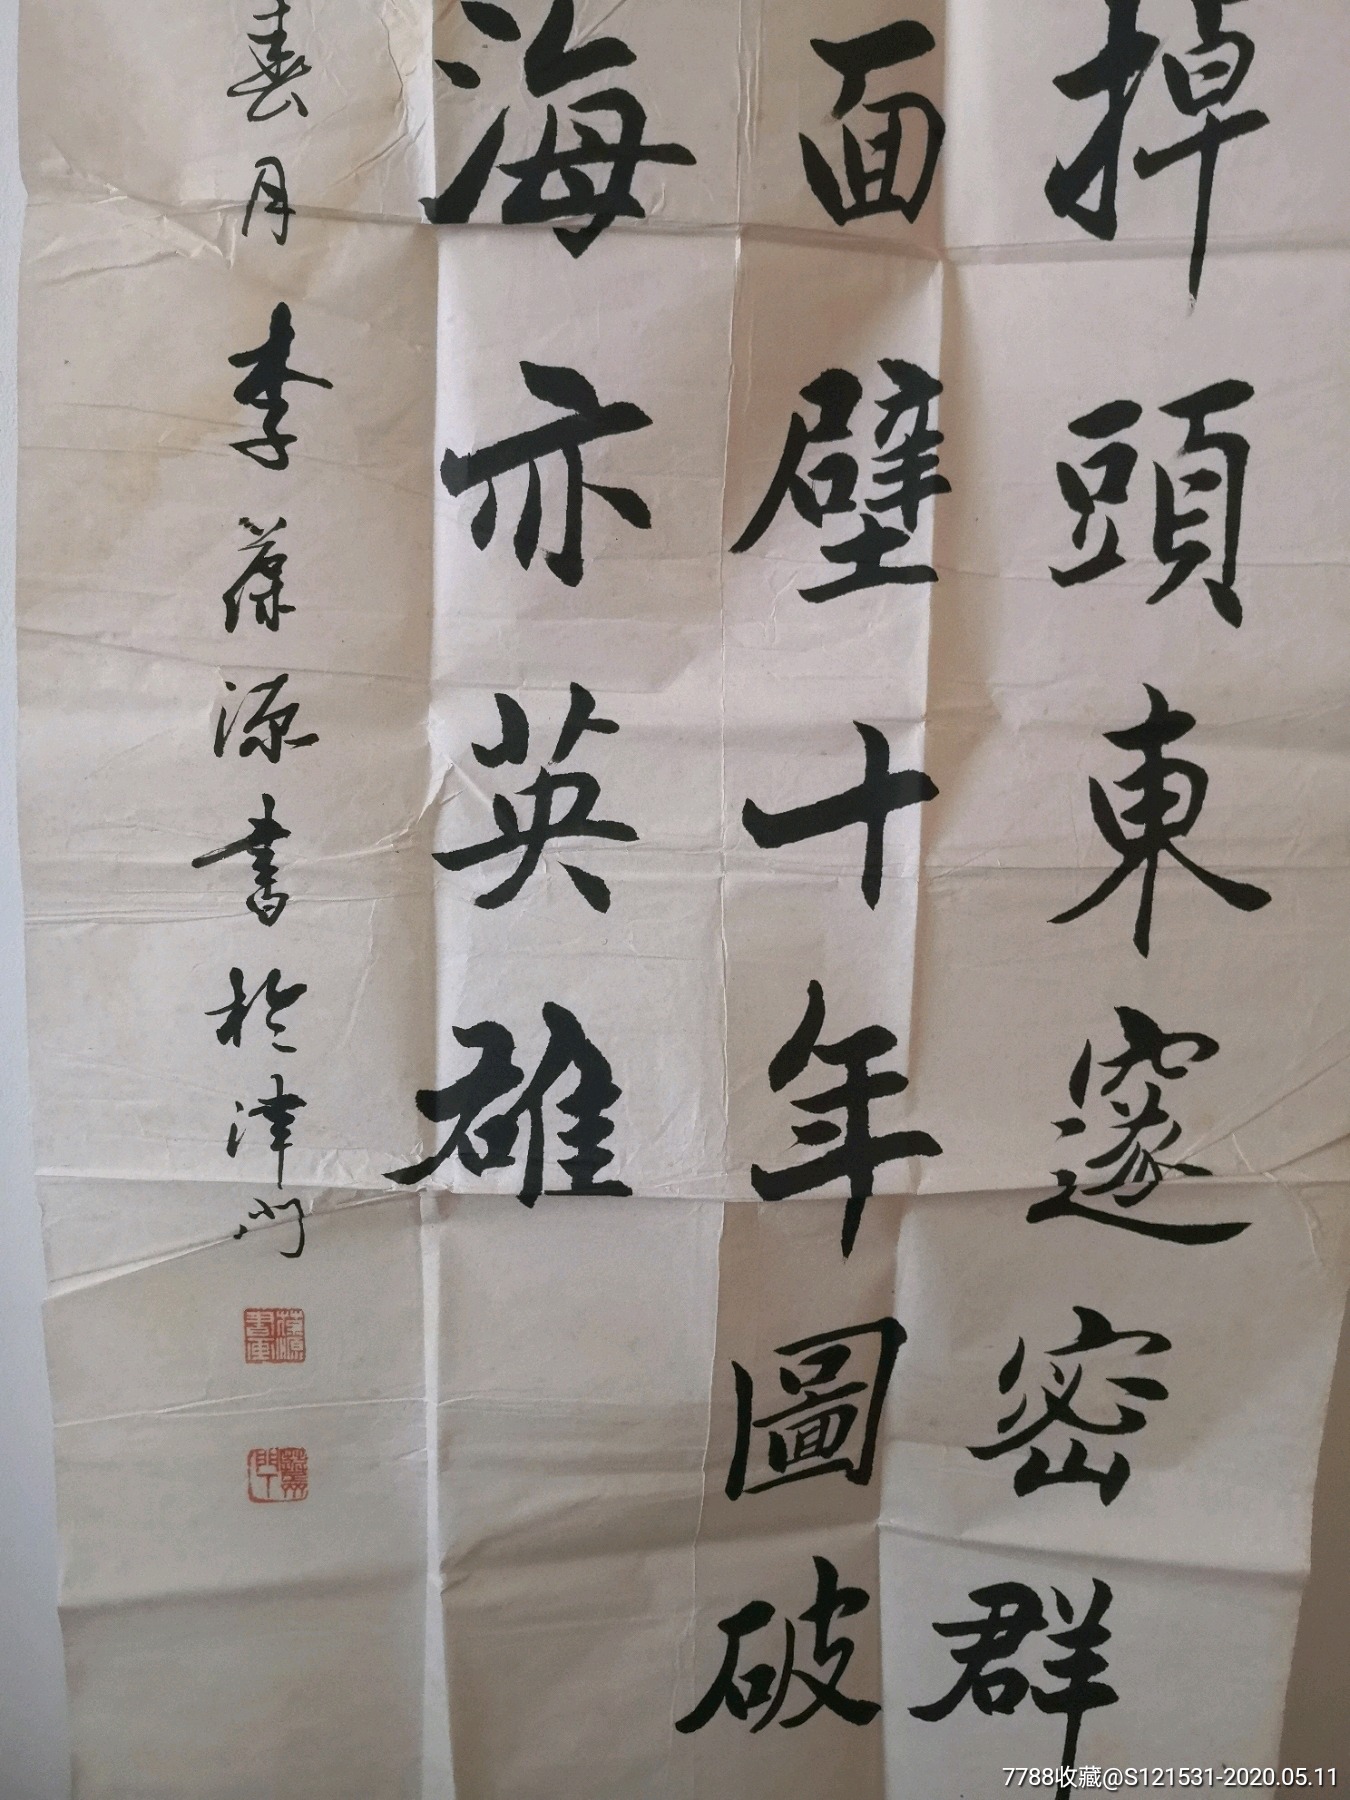 掉頭東邃密群
面壁十年圖破
海亦英雄
春月李葆源書於津門
葆源書画
7788收藏@S121531-2020.05.11